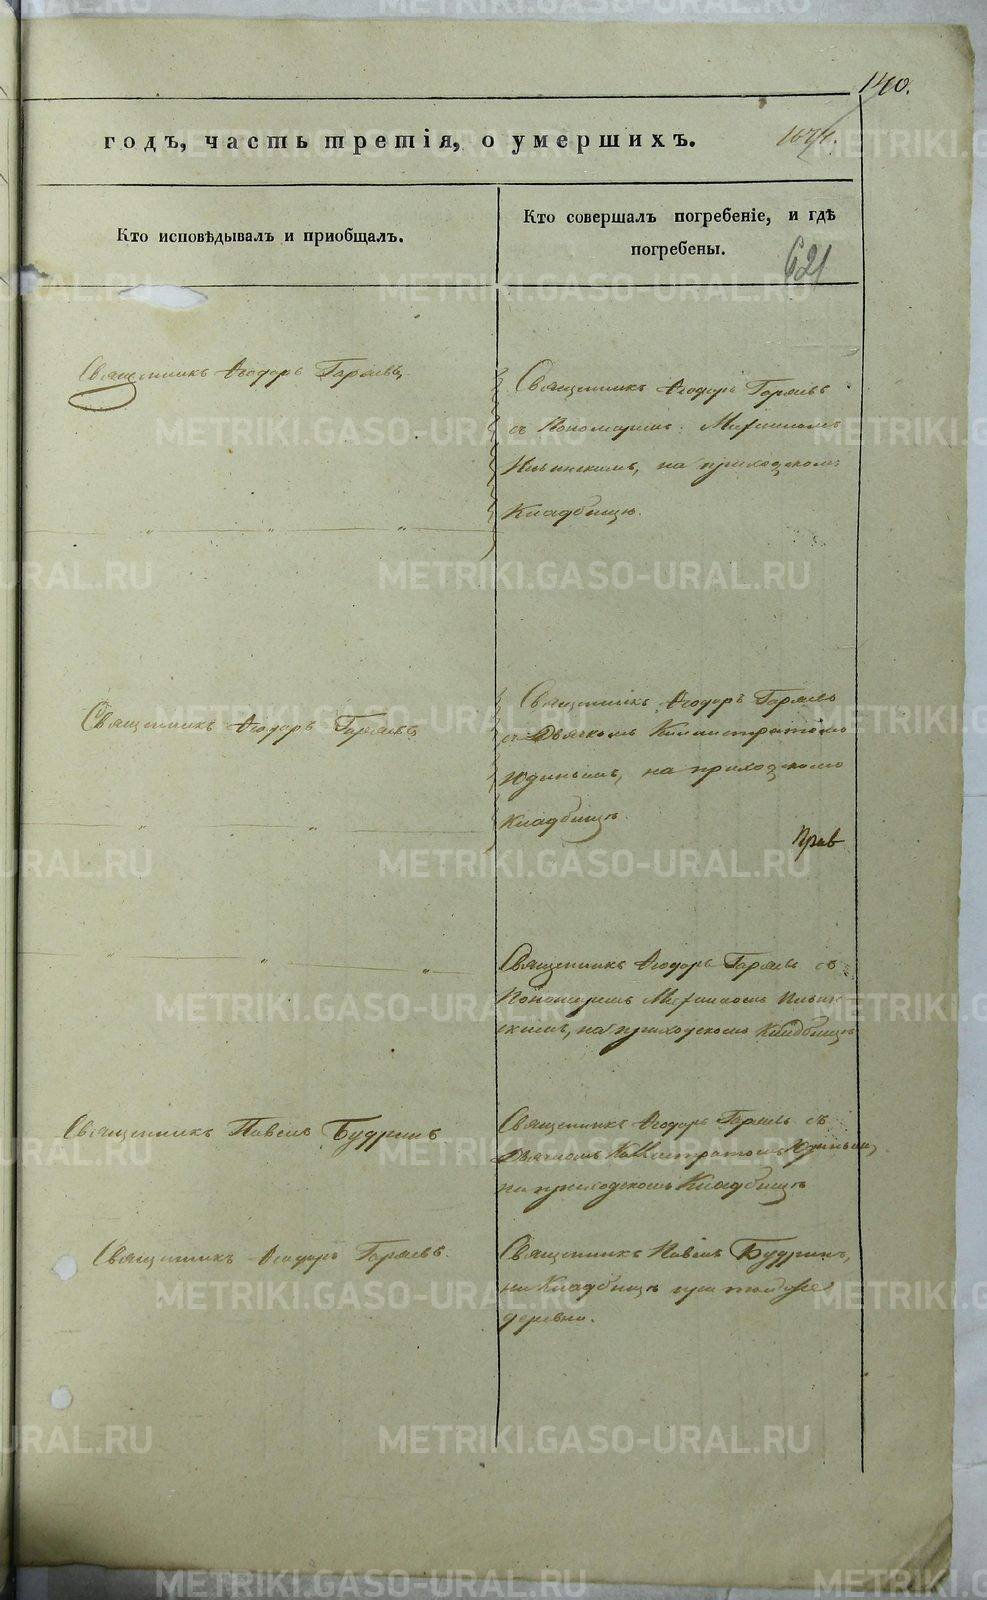 140.
годъ, часть третія, о умершихъ.
Кто исповѣдывалъ и пріобщалъ.
Кто совершалъ погребеніе, и гдѣ
погребены.
621
Священникъ Ѳеодоръ Горяевъ
Священникъ Ѳеодоръ Горяевъ
съ Пономаремъ
Ильинскимъ, на приходскомъ
Кладбищѣ.
Священникъ Ѳеодоръ Горяевъ
Священникъ Ѳеодоръ Горяевъ
съ Дьячкомъ Каллистратомъ
Юдинымъ, на приходскомъ
Кладбищѣ.
Прав
Священникъ Ѳеодоръ Горяевъ съ
Пономаремъ Ильин
скимъ, на приходскомъ Кладбищѣ
Священникъ Павелъ Будринъ
Священникъ Ѳеодоръ Горяевъ съ
Дьячкомъ Каллистратомъ Юдинымъ,
на приходскомъ Кладбищѣ
Священникъ Ѳеодоръ Горяевъ.
Священникъ Павелъ Будринъ,
на Кладбищѣ при той же
деревни.
METRIKI.GASO-URAL.RU